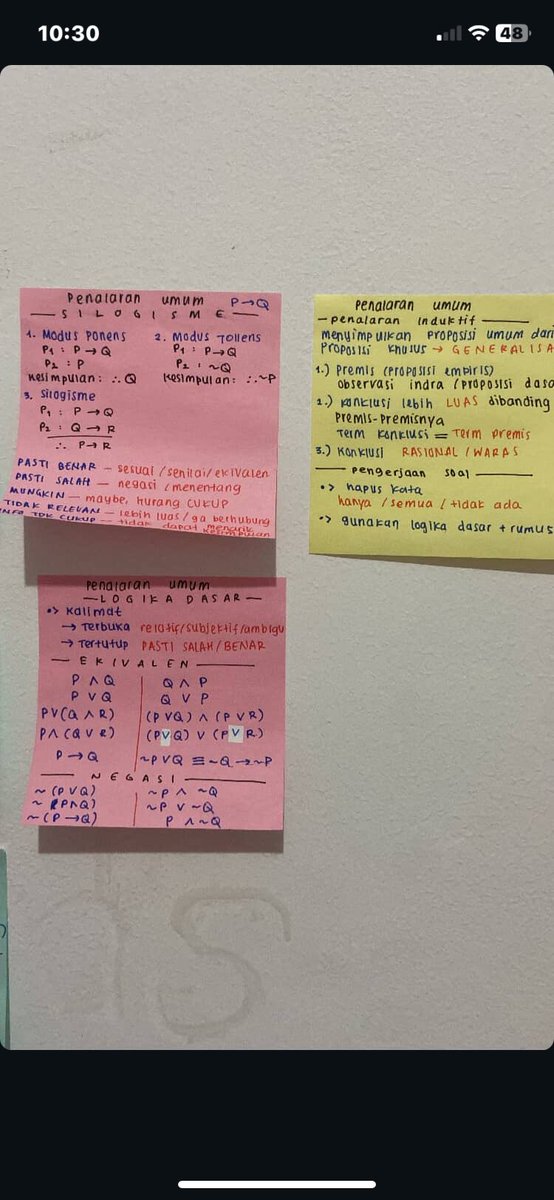 10:30
48
Penalaran umum P→Q
— SILOGISME —
1. Modus Ponens
P₁ : P→Q
P₂ : P
Kesimpulan: ∴ Q
2. Modus Tollens
P₁ : P→Q
P₂ : ~Q
Kesimpulan: ∴ ~P
3. Silogisme
P₁ : P → Q
P₂ : Q → R
∴ P→R
PASTI BENAR — sesuai/senilai/ekivalen
PASTI SALAH — negasi/menentang
MUNGKIN — maybe, kurang CUKUP
TIDAK RELEVAN — lebih luas/ga berhubung
INFO TDK CUKUP — tidak dapat menarik kesimpulan
Penalaran umum
— LOGIKA DASAR —
•> Kalimat
→ Terbuka relatif/subjektif/ambigu
→ Tertutup PASTI SALAH/BENAR
— EKIVALEN —
P ∧ Q | Q ∧ P
P ∨ Q | Q ∨ P
P∨(Q ∧ R) | (P∨Q) ∧ (P∨R)
P∧(Q∨R) | (P∨Q) ∨ (P∨R)
P→Q | ~P∨Q ≡ ~Q→~P
— NEGASI —
~(P∨Q) | ~P ∧ ~Q
~(P∧Q) | ~P ∨ ~Q
~(P→Q) | P ∧ ~Q
Penalaran umum
— penalaran induktif —
Menyimpulkan proposisi umum dari
proposisi khusus → GENERALISA
1.) Premis (proposisi empiris)
observasi indra (proposisi dasa
2.) Konklusi lebih LUAS dibanding
Premis-premisnya
Term konklusi = Term premis
3.) Konklusi RASIONAL/WARAS
— pengerjaan soal —
•> hapus kata
hanya/semua/tidak ada
•> gunakan logika dasar + rumus